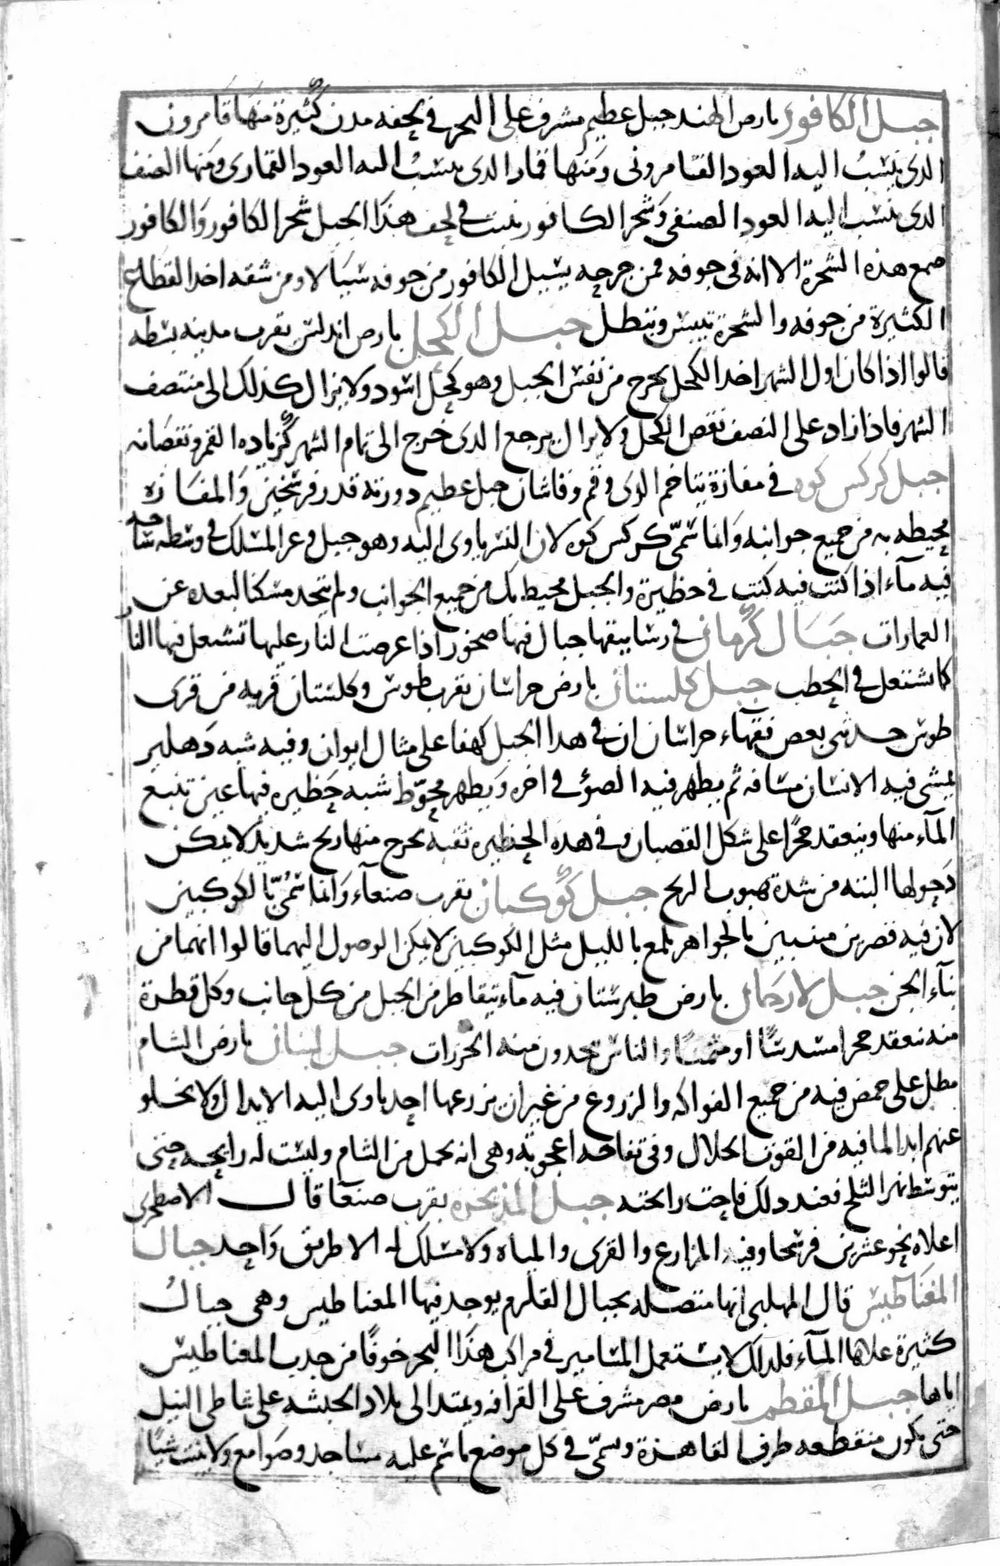 جبل الكافور بارض الهند جبل عظيم مشرف على البحر في لحفه مدن كثيرة منها قامرون
الذي ينسب اليه العود القامروني ومنها قمار الذي ينسب اليه العود القماري ومنها الصنف
الذي ينسب اليه العود الصنفي وشجر الكافور ينبت في لحف هذا الجبل شجر الكافور والكافور
صمغ هذه الشجرة الا انه في جوفه فمن جرحه يسيل الكافور من جوفه سيالا ومن شقه اخذ القطاع
الكثيرة من جوفه والشجرة تيبس وتبطل جبل الكحل بارض اندلس بقرب مدينه بسطه
قالوا اذا كان اول الشهر اخذ الكحل يخرج من نفس الجبل وهو كحل اسود ولا يزال كذلك الى منتصف
الشهر فاذا زاد على النصف نقص الكحل ولا يزال يرجع الذي خرج الى تمام الشهر كزياده القمر ونقصانه
جبل كركس كوه في مفازة يتاخم الري وقم وقاشان جبل عظيم دورته قدر فرسخين والمفازه
محيطه به من جميع جوانبه وانما سمى كركس كوه لان النسر ياوى اليه وهو جبل وعر المسلك في وسطه ساحه
فيه ماء اذا كنت فيه كنت في حظيرة والجبل محيط بك من جميع الجوانب ولم تجد مسكنا لبعده عن
العمارات جبال كرمان في رساتيقها جبال فيها صخور اذا عرضت النار عليها تشعل فيها النار
كما تشتعل في الحطب جبل كلستان بارض خراسان بقرب طوس وكلستان قريه من قرى
طوس حدثني بعض فقهاء خراسان ان في هذا الجبل كهفا على مثال ايوان وفيه شبه دهليز
يمشي فيه الانسان مسافه ثم يظهر فيه الضوء في اخره ويظهر محوط شبه حظيره فيها عين تنبع
الماء منها وينعقد حجرا على شكل القضبان وفي هذه الحظيره ثقبه يخرج منها ريح شديد لا يمكن
دخولها البته من شدة هبوب الريح جبل كوكبان بقرب صنعاء وانما سمى بالكوكبين
لان فيه قصرين مبنيين بالجواهر تلمع بالليل مثل الكوكبين لا يمكن الوصول اليهما قالوا انهما من
بناء الجن جبل لارجان بارض طبرستان فيه ماء يتقاطر من الجبل من كل جانب وكل قطرة
منه تنعقد حجرا مسدسا او مثمنا والناس يتخذون منه الخرزات جبل لبنان بارض الشام
مطل على حمص فيه من جميع الفواكه والزروع من غير ان يزرعها احد ياوى اليه الابدال ولا يخلو
عنهم ابدا لما فيه من القوت الحلال وفي تفاحه اعجوبة وهي انه يحمل من الشام وليست له رايحه حتى
يتوسط نهر الثلج فعند ذلك فاحت رايحته جبل المذيخره بقرب صنعا قال الاصطخري
اعلاه نحو عشرين فرسخا وفيه المزارع والقرى والمياه ولا مسلك له الا طريق واحد جبال
المغناطيس قال المهلبى انها متصله بجبال القلزم يوجد فيها المغناطيس وهى جبال
كثيرة علاها الماء فلذلك لا يستعمل المسامير في مراكب هذا البحر خوفا من جذب المغناطيس
اياها جبل المقطم بارض مصر مشرف على القرافه ويمتد الى بلاد الحبشه على شاطى النيل
حتى يكون منقطعه طرف القاهرة وسمى في كل موضع باسم عليه مساجد وصوامع ولا ينبت شيا